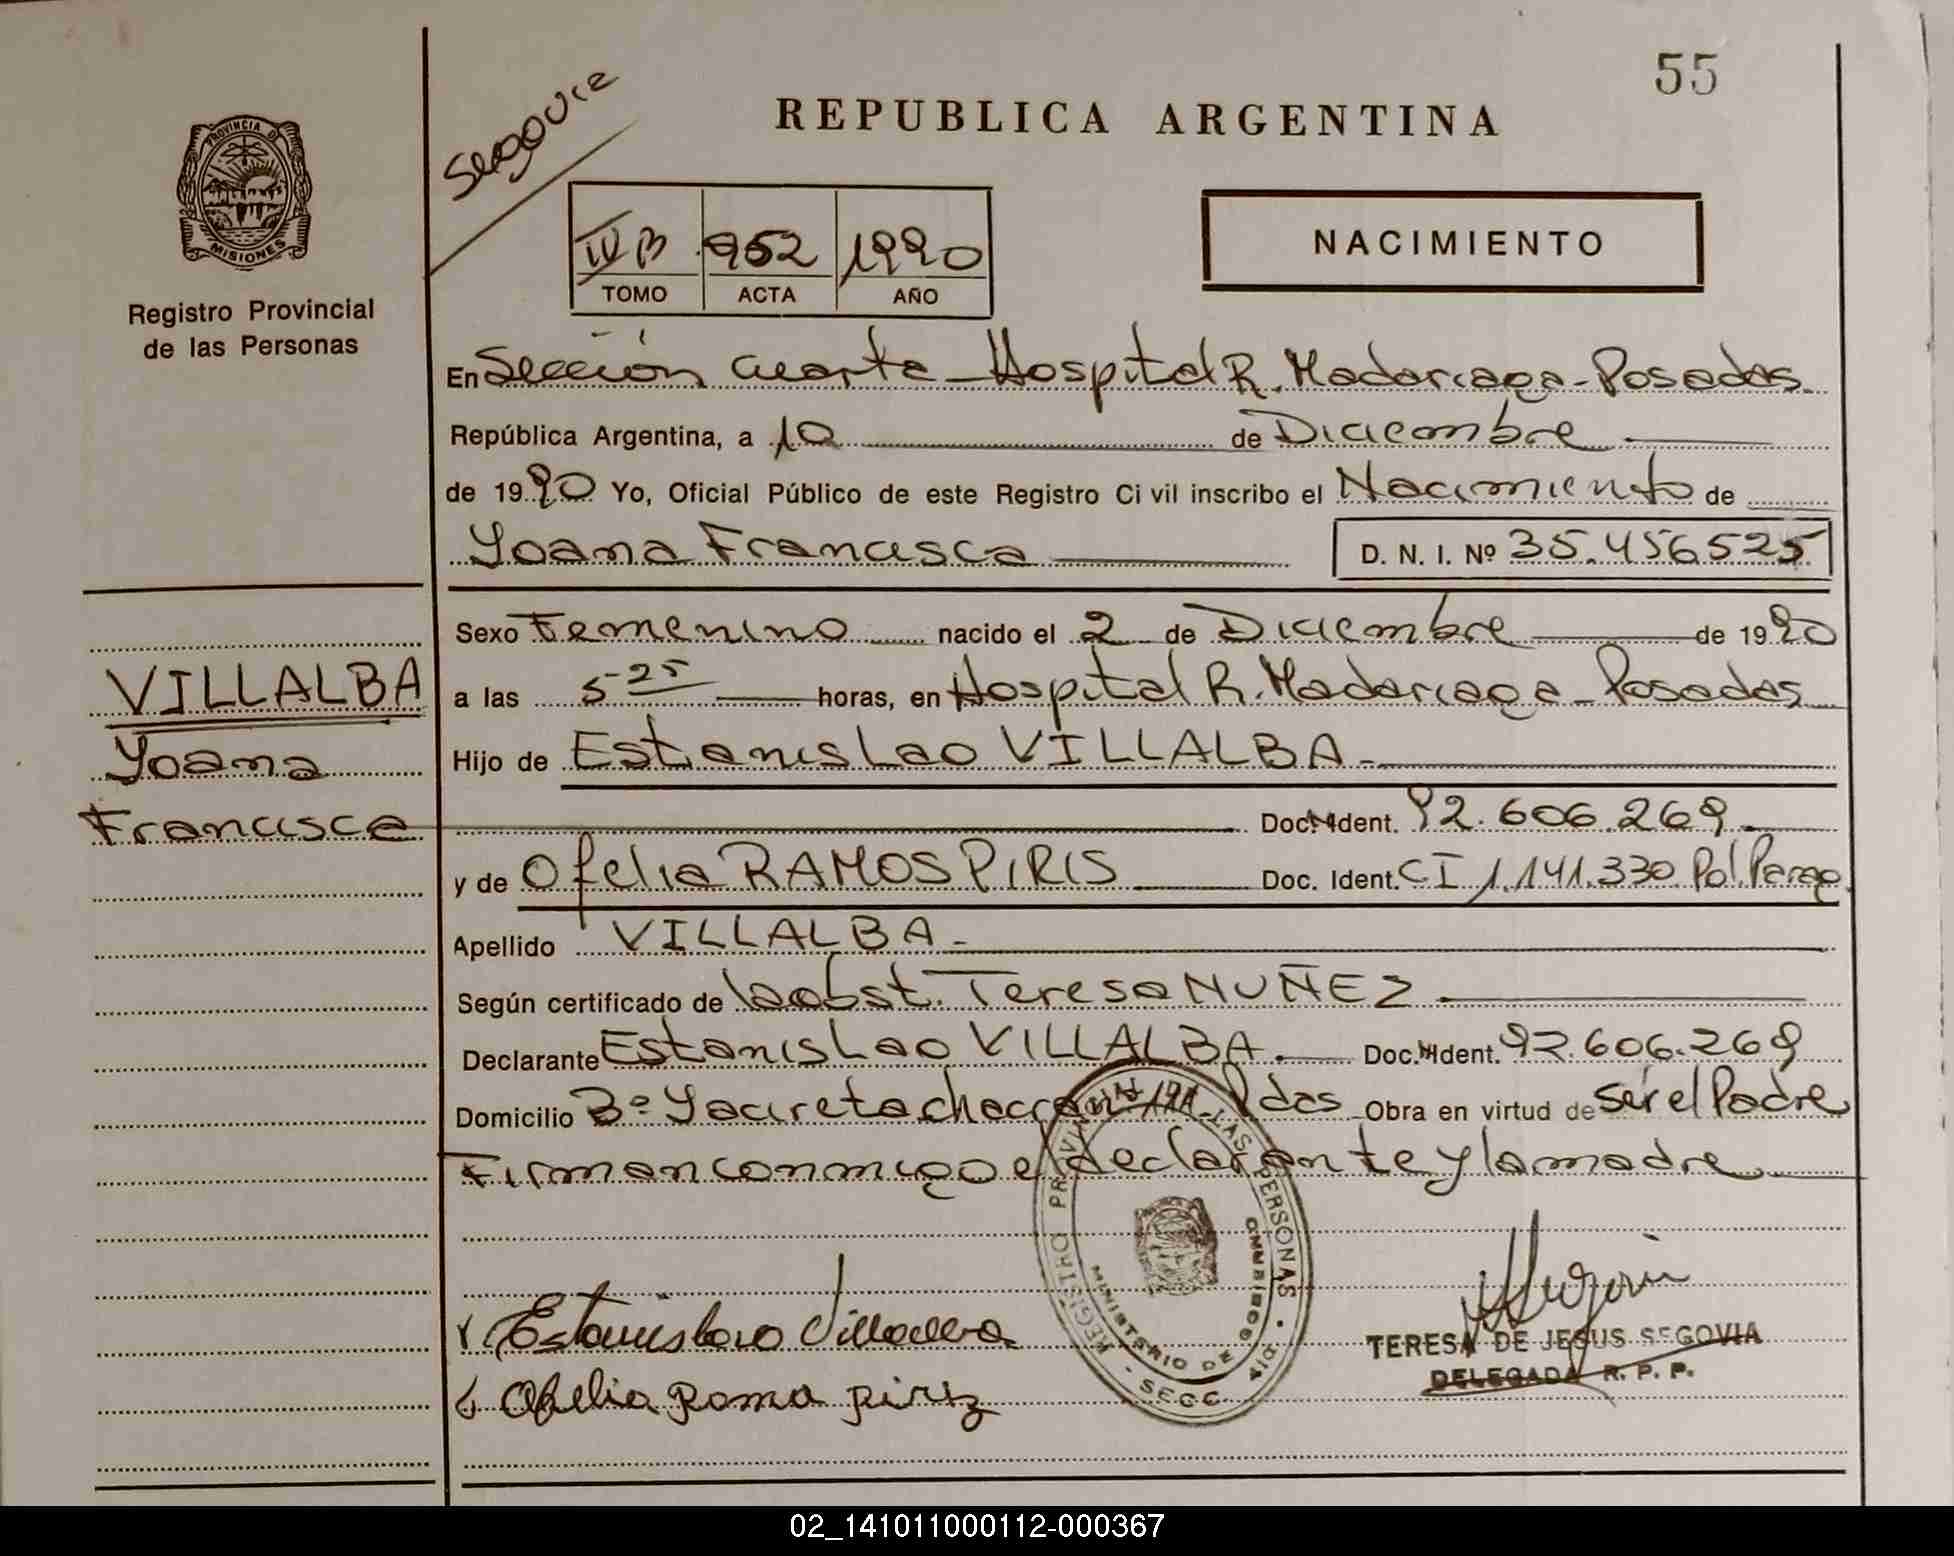 55
REPUBLICA ARGENTINA
PROVINCIA D
MISIONES
Registro Provincial
de las Personas
IV B 952 1990
TOMO ACTA AÑO
NACIMIENTO
En Sección cuarta - Hospital R. Madariaga - Posadas
República Argentina, a 10 de Diciembre
de 1990 Yo, Oficial Público de este Registro Civil inscribo el Nacimiento de
Yoana Francisca D. N. I. Nº 35.456525
Sexo Femenino nacido el 2 de Diciembre de 1990
a las 5-25 horas, en Hospital R. Madariaga - Posadas
Hijo de Estanislao VILLALBA -
Doc. Ident. 92.606.269
y de Ofelia RAMOS PIRIS Doc. Ident. CI 1.141.330 Pol. Parag
Apellido VILLALBA -
Según certificado de la obst. Teresa NUÑEZ
Declarante Estanislao VILLALBA - Doc. Ident. 92.606.269
Domicilio Bº Yacireta chacra 191 Pdas Obra en virtud de ser el Padre
Firman conmigo el declarante y la madre
VILLALBA
Yoana
Francisca
REGISTRO PROVINCIAL LAS PERSONAS
MINISTERIO DE GOBIERNO
SECC. 4ta
Estanislao Villalba
Ofelia Roma piriz
TERESA DE JESUS SEGOVIA
DELEGADA R. P. P.
02_141011000112-000367